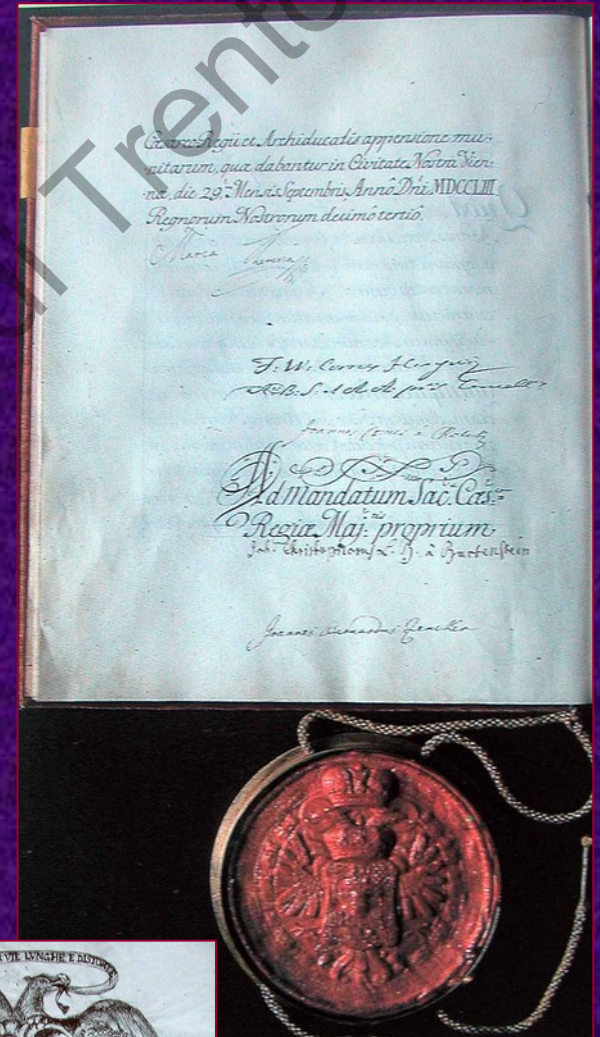 di Trento
Cæsareo-Regii et Archiducalis appensione mu-
nitarum, quæ dabantur in Civitate Nostra Vien-
næ, die 29.ª Mensis Septembris, Annô Dñi MDCCLIII
Regnorum Nostrorum decimô tertiô.
Maria Theresia
Joannes Comes à
Ad mandatum Sac: Cæs:
Regiæ Maj: proprium
Joh. Christophorus L. B. à Bartenstein
Joannes Bernardus
VIE LUNGHE E DISTORTE